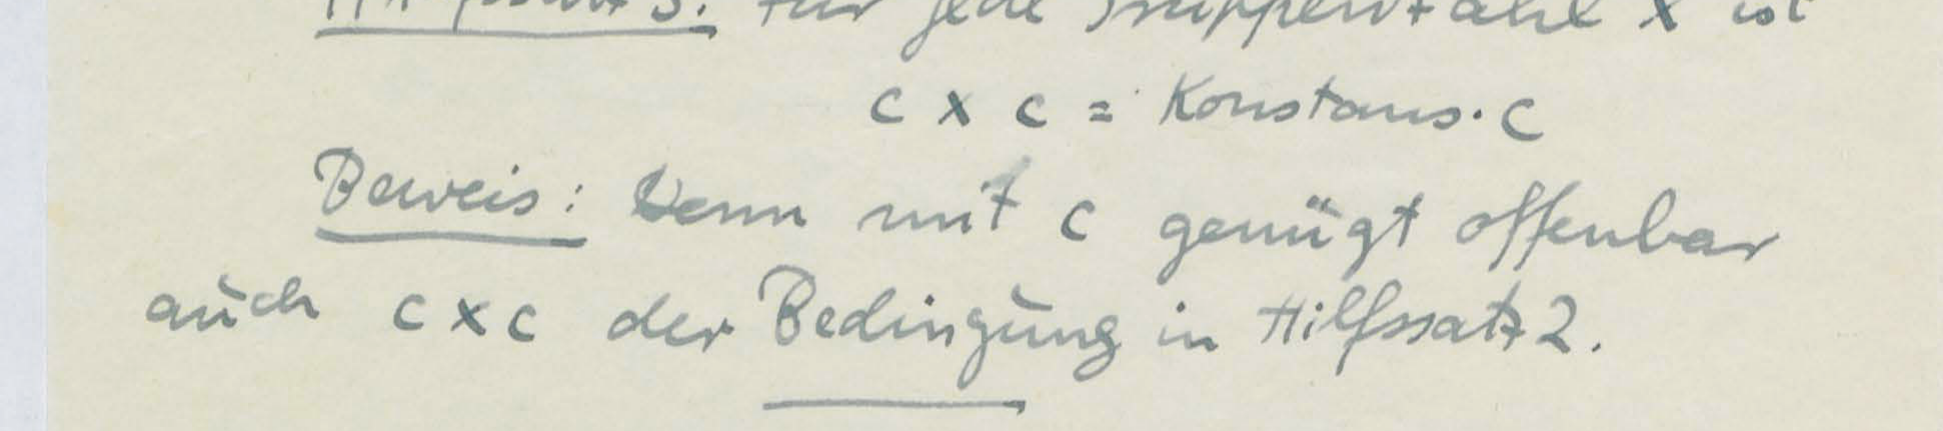 Hilfssatz 3: Für jede Gruppenzahl x ist
c x c = Konstans · c
Beweis: Denn mit c genügt offenbar
auch c x c der Bedingung in Hilfssatz 2.